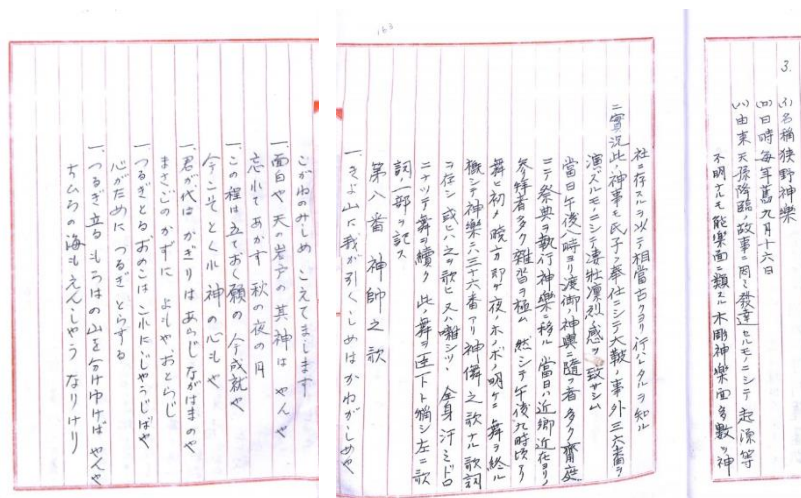 3.
(イ)名稱 狹野神樂
(ロ)日時 毎年舊九月十六日
(ハ)由來 天孫降臨ノ故事ニ因ミ發達セルモノニシテ起源等
不明ナルモ能樂面ニ類スル木彫神樂面多數ヲ神
163
社ニ存スルヲ以テ相當古クヨリ行ハレタルヲ知ル
ニ實況 此ノ神事モ氏子ノ奉仕ニシテ大鞁ノ事外三六番ヲ
演ズルモノニシテ凄壯凛烈ノ感ヲ致サシム
當日午後八時ヨリ渡御ノ神輿ニ隨フ者多ク齋庭
ニテ祭典ヲ執行神樂ニ移ル 當日ハ近郷近在ヨリノ
参拜者多ク雜沓ヲ極ム 然シテ午後九時頃ヨリ
舞ヒ初メ曉方即チ夜ノホノボノ明ケニ舞ヲ終ル
概シテ神樂ニハ三十六番アリ神儛之歌ナル歌詞
ヲ存シ 或ヒハ之ヲ歌ヒ又ハ囃シツヽ全身汗ミドロ
ニナツテ舞ヲ續ク 此ノ舞ヲ
下ト稱シ左ニ歌
詞ノ一部ヲ記ス
第八番 神帥之歌
一、きよ山に我が引くしめはかねがしめや
こがねのしめ こえてまします
一、面白や 天の岩戸の其神は やんや
忘れてあかす 秋の夜の月
一、この程は立ておく願の今成就や
今こそとくれ 神の心もや
一、君が代はかぎりはあらじながはまのや
まさごのかずに よもやおとらじ
一、つるぎとるおのこはこれにじやうじばや
心がために つるぎとらする
一、つるぎ立るもろはの山を分けゆけばやんや
ちしろの海もえんしやう なりけり